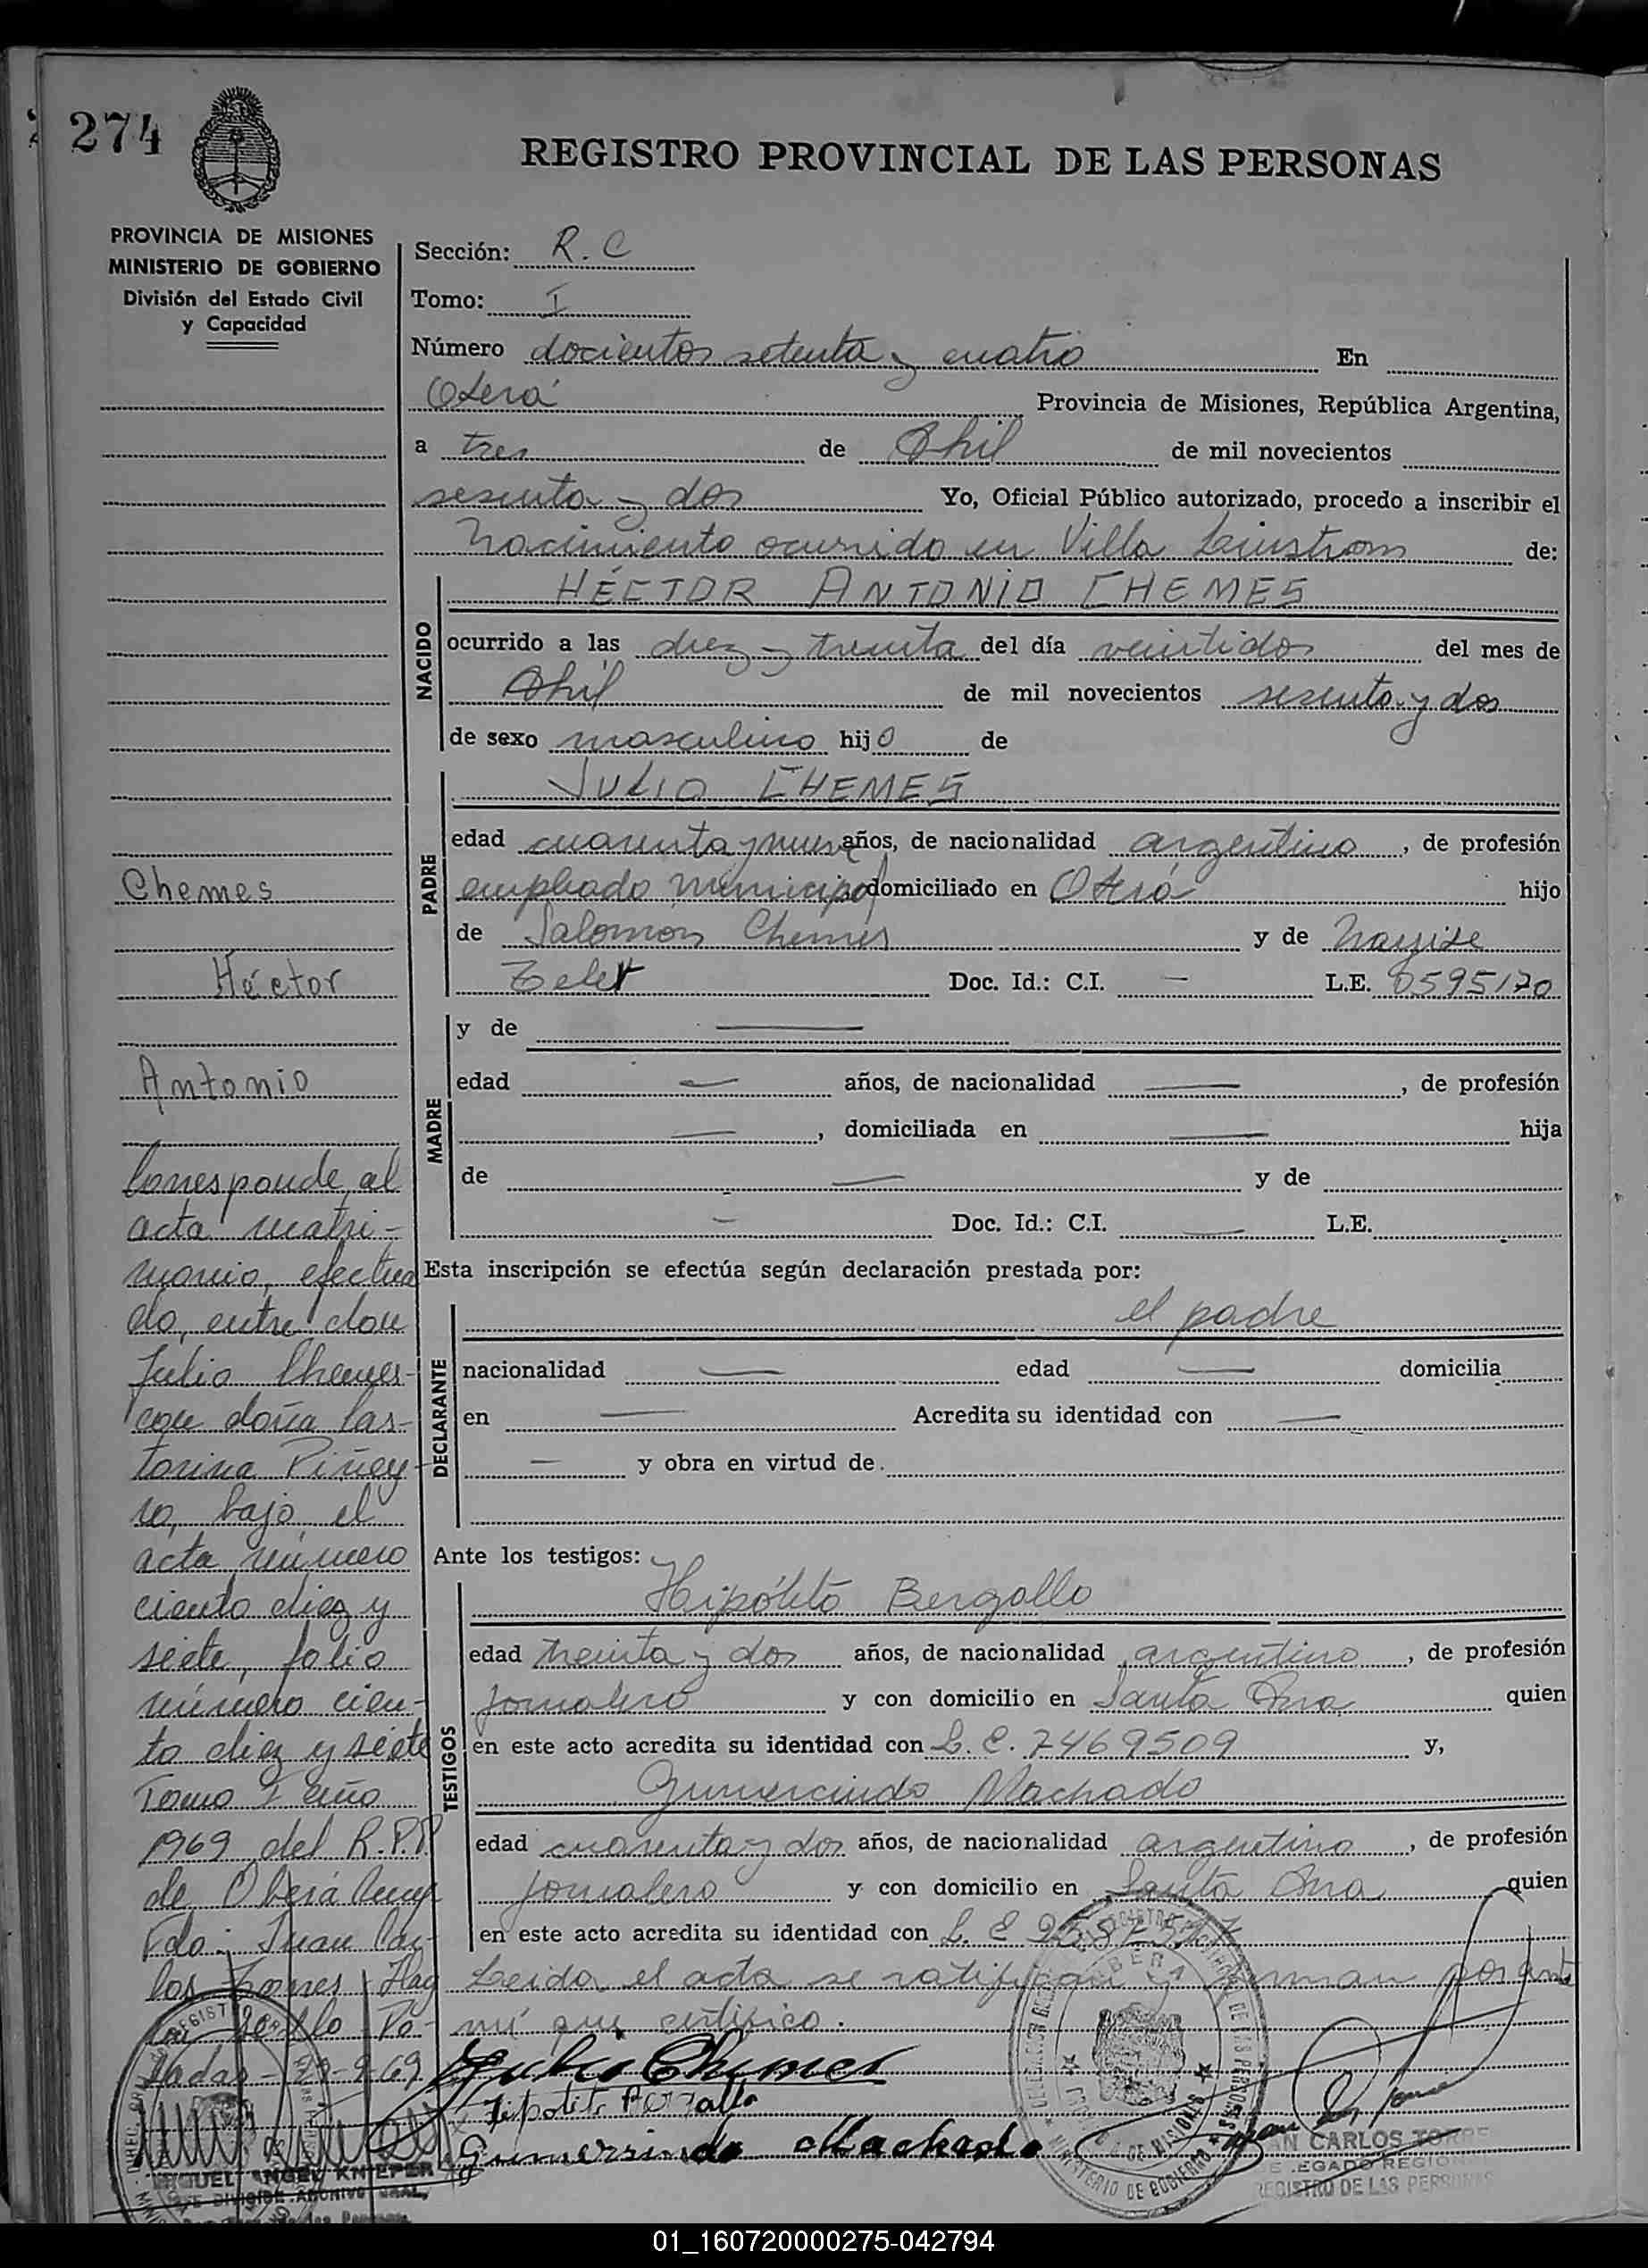 274
REGISTRO PROVINCIAL DE LAS PERSONAS
PROVINCIA DE MISIONES
MINISTERIO DE GOBIERNO
División del Estado Civil
y Capacidad
Sección: R.C
Tomo: I
Número docientos setenta y cuatro En
Oberá Provincia de Misiones, República Argentina,
a tres de Abril de mil novecientos
sesenta y dos Yo, Oficial Público autorizado, procedo a inscribir el
Nacimiento ocurrido en Villa de:
HÉCTOR ANTONIO CHEMES
NACIDO
ocurrido a las diez y treinta del día veintidos del mes de
Abril de mil novecientos sesenta y dos
de sexo masculino hijo de
JULIO CHEMES
PADRE
edad cuarenta y nueve años, de nacionalidad argentino, de profesión
empleado municipal domiciliado en Oberá hijo
de Salomón Chemes y de
Doc. Id.: C.I. — L.E. 0595120
MADRE
y de —
edad — años, de nacionalidad —, de profesión
—, domiciliada en — hija
de — y de
— Doc. Id.: C.I. — L.E.
Esta inscripción se efectúa según declaración prestada por:
el padre
DECLARANTE
nacionalidad — edad — domicilia
en — Acredita su identidad con —
— y obra en virtud de
Ante los testigos:
Hipólito Bergallo
TESTIGOS
edad treinta y dos años, de nacionalidad argentino, de profesión
jornalero y con domicilio en Santa Ana quien
en este acto acredita su identidad con L.E. 7469509 y,
Gumercindo Machado
edad cuarenta y dos años, de nacionalidad argentino, de profesión
jornalero y con domicilio en Santa Ana quien
en este acto acredita su identidad con L.E
Leida el acta se ratifican y firman por ante
mí que certifico.
Julio Chemes
Hipolito
Gumersindo Machado
Chemes
Héctor
Antonio
Corresponde al
acta matri-
monio, efectua
do, entre don
Julio Chemes
con doña Cas-
torina Piñey-
ro, bajo el
acta número
ciento diez y
siete, folio
número cien-
to diez y siete
Tomo I año
1969 del R.P.P.
de Oberá
Fdo: Juan Car-
los Torres
sello Po-
sadas - -9-69
MIGUEL ANGEL KNIEPER
JUAN CARLOS TORRES
DELEGADO REGIONAL
REGISTRO DE LAS PERSONAS
01_160720000275-042794